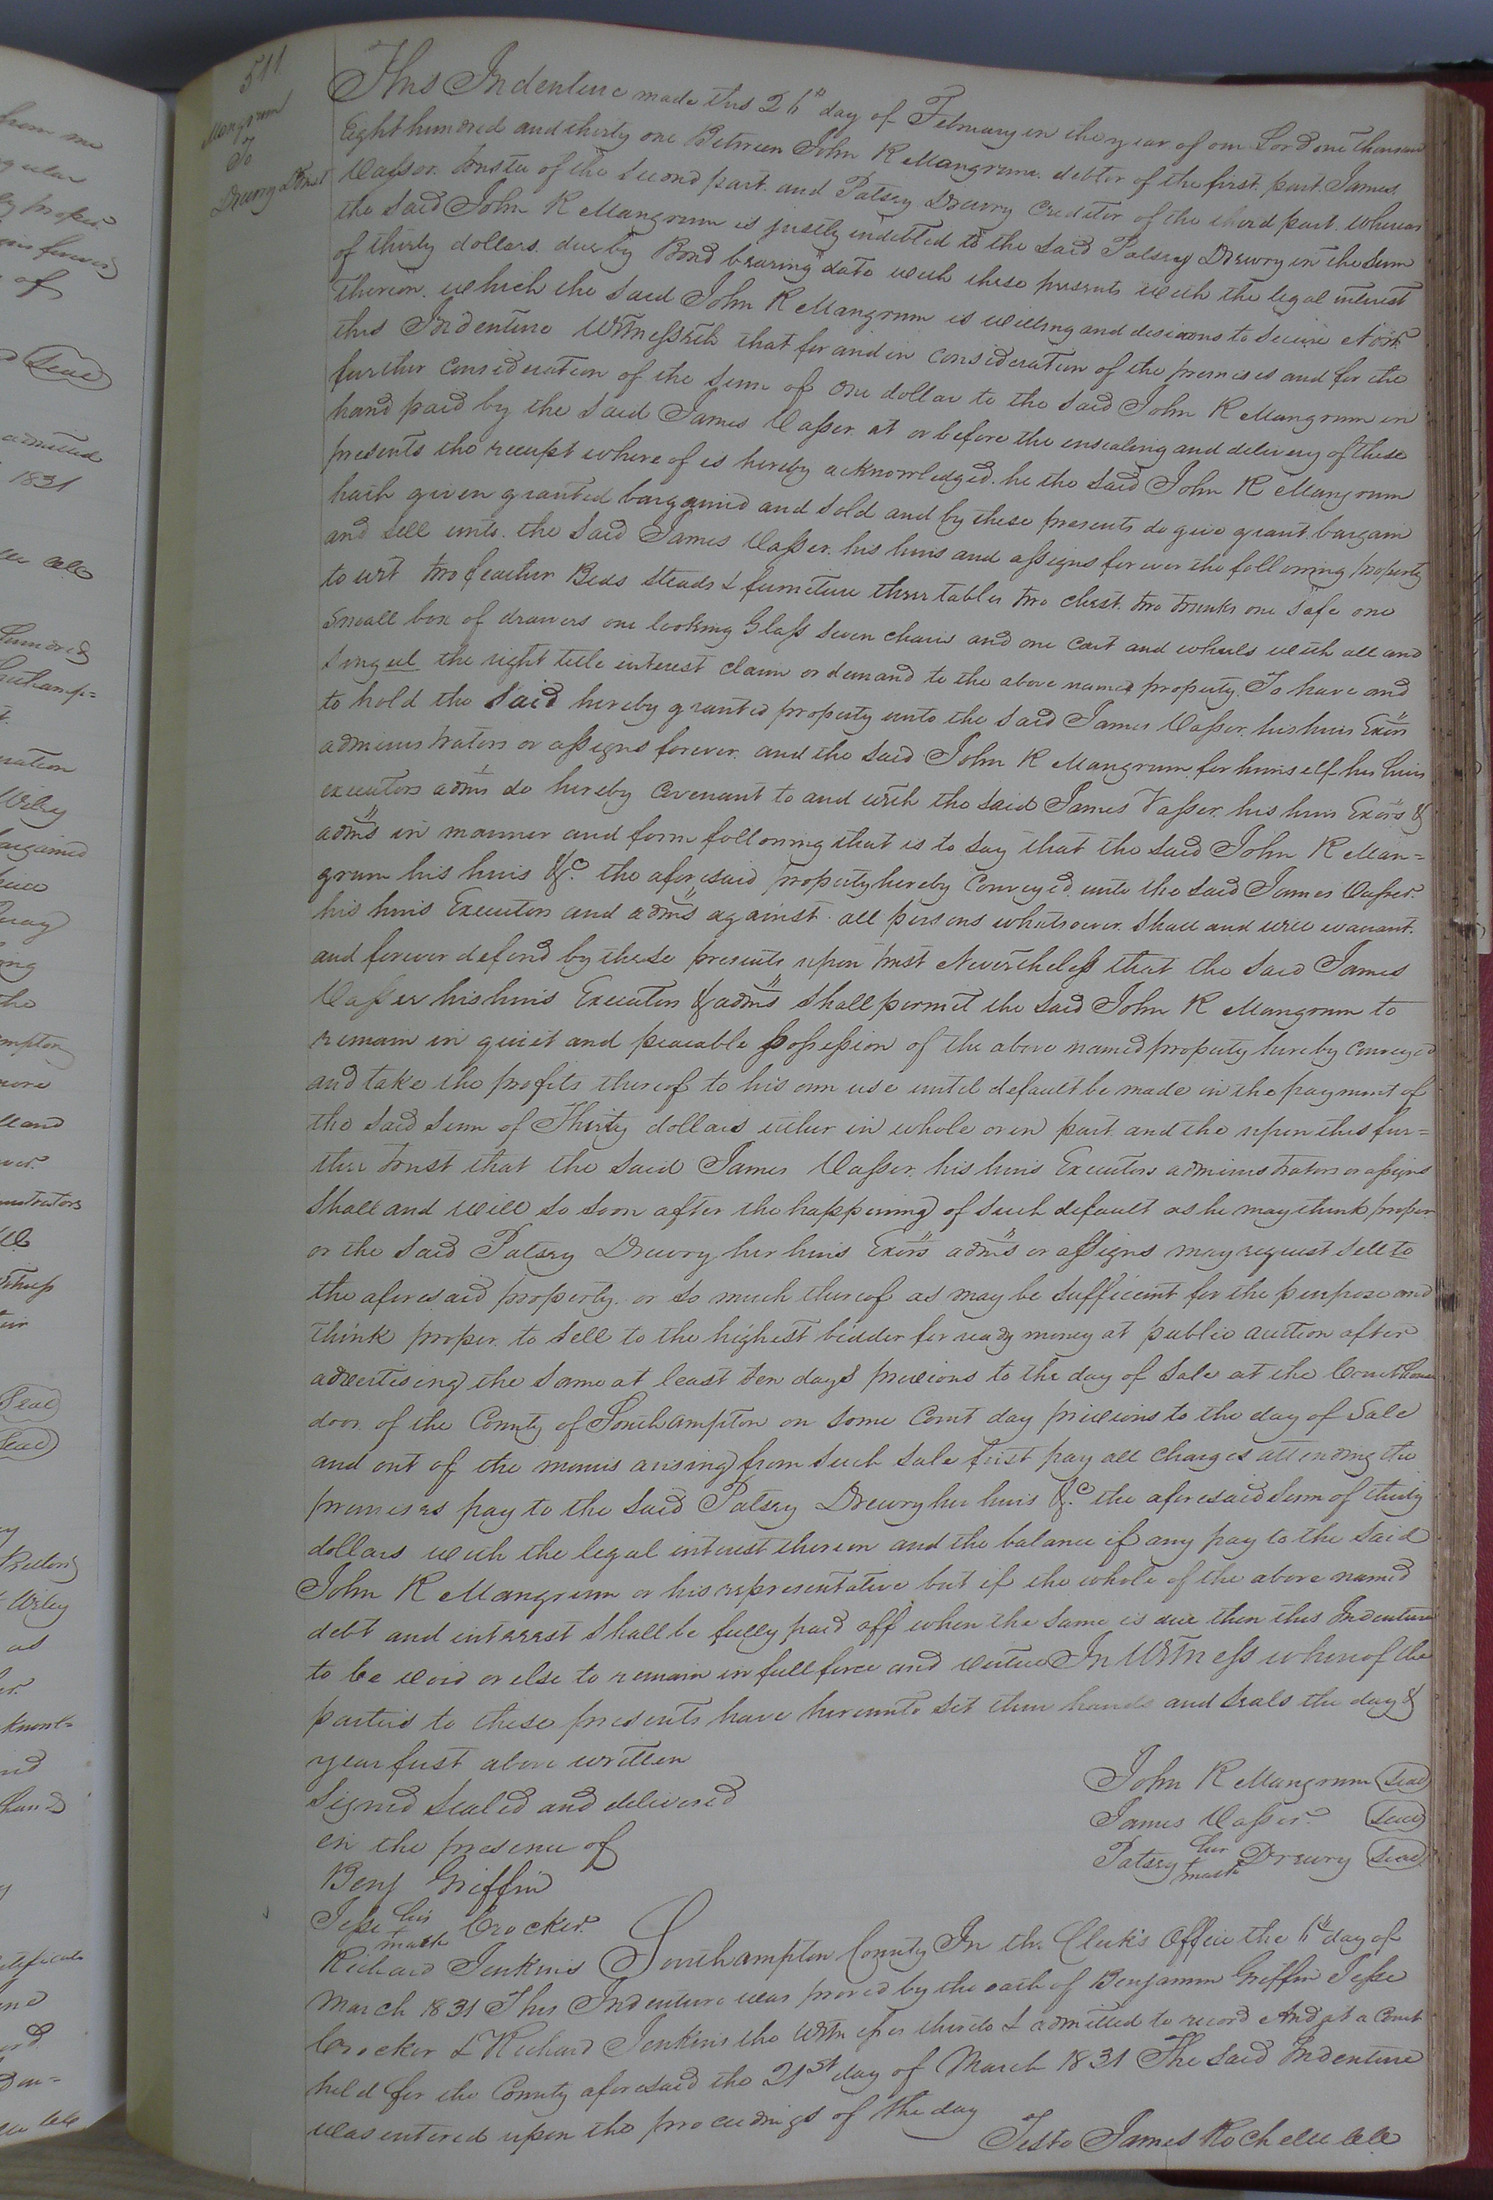 511
Mangrum
To
Drewry D Trust
This Indenture made this 26th day of February in the year of our Lord one thousand
Eight hundred and thirty one Between John R Mangrum debtor of the first part James
Vasser trustee of the second part and Patsey Drewry creditor of the third part whereas
the said John R Mangrum is justly indebted to the said Patsey Drewry in the sum
of thirty dollars due by Bond bearing date with these presents with the legal interest
thereon which the said John R Mangrum is willing and desirous to secure Now
this Indenture Witnesseth that for and in consideration of the premises and for the
further consideration of the sum of one dollar to the said John R Mangrum in
hand paid by the said James Vasser at or before the ensealing and delivery of these
presents the receipt where of is hereby acknowledged he the said John R Mangrum
hath given granted bargained and sold and by these presents do give grant bargain
and sell unto the said James Vasser his heirs and assigns for ever the following property
to wit two feather Beds steads & furniture three tables two chest two trunks one safe one
small box of drawers one looking Glass seven chairs and one cart and wheels with all and
singul the right title interest claim or demand to the above named property. To have and
to hold the said hereby granted property unto the said James Vasser his heirs Exors
administrators or assigns forever and the said John R Mangrum for himself his heirs
executors adms do hereby covenant to and with the said James Vasser his heirs Exors &
adms in manner and form following that is to say that the said John R Man=
grum his heirs &c. the aforesaid property hereby conveyed unto the said James Vasser
his heirs Executors and adms against all persons whatsoever shall and will warrant
and forever defend by these presents upon trust Nevertheless that the said James
Vasser his heirs Executors & adms shall permit the said John R Mangrum to
remain in quiet and peaceable possession of the above named property hereby conveyed
and take the profits thereof to his own use until default be made in the payment of
the said sum of Thirty dollars either in whole or in part and the upon this fur=
ther trust that the said James Vasser his heirs Executors administrators or assigns
shall and will so soon after the happening of such default as he may think proper
or the said Patsey Drewry her heirs Exors adms or assigns may request sell to
the aforesaid property or so much thereof as may be sufficient for the purpose and
think proper to sell to the highest bidder for ready money at public auction after
advertising the same at least ten days previous to the day of sale at the Court House
door of the County of Southampton on some Court day previous to the day of sale
and out of the monies arising from such sale first pay all charges attending the
premises pay to the said Patsey Drewry her heirs &c. the aforesaid sum of thirty
dollars with the legal interest thereon and the balance if any pay to the said
John R Mangrum or his representative but if the whole of the above named
debt and interest shall be fully paid off when the same is due then this Indenture
to be void or else to remain in full force and virtue In Witness whereof the
parties to these presents have hereunto set their hands and seals the day &
year first above written
Signed sealed and delivered
in the presence of
Benj Griffin
Jesse his mark Crocker
Richard Jenkins
John R Mangrum Seal
James Vasser Seal
Patsey her mark Drewry Seal
Southampton County In the Clerk's Office the 6th day of
March 1831 This Indenture was proved by the oath of Benjamin Griffin Jesse
Crocker & Richard Jenkins the Witnesses thereto & admitted to record And at a Court
held for the County aforesaid the 21st day of March 1831 The said Indenture
was entered upon the proceedings of the day
Teste James Rochelle